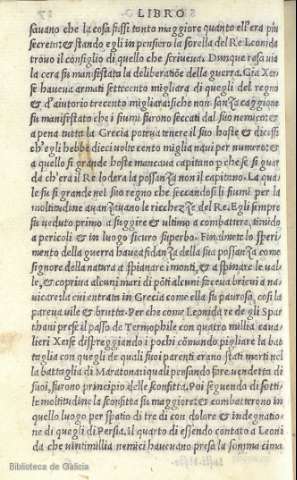 LIBRO
sauano che la cosa fussi tanto maggiore quanto ell'era piu
secreta: & stando egli in pensiero la sorella del Re Leonida
trouo il consiglio di quello che scriueua. Dunque rasa uia
la cera su manifestata la deliberatiõe della guerra. Gia Xer
se haueua armati settecento migliara di quegli del regno
& d'aiutorio trecento migliara: si che non sanza caggione
su manifestato che i fiumi furono seccati dal suo nemico: &
a pena tutta la Grecia poteua tenere il suo hoste & dicessi
ch'egli hebbe dieci uolte cento miglia naui per numero: &
a quello si grande hoste mancaua capitano p che se si guar
da ch'era il Re lodera la possanza non il capitano. La qua
le fu si grande nel suo regno che seccandosi li fiumi per la
moltitudine auanzauano le ricchezze del Re. Egli sempre
fu ueduto primo a fuggire & ultimo a combattere, timido
a pericoli & in luogo sicuro superbo. Finalmẽte lo speri
mento della guerra haueа fidanza della sua possanza come
signore della natura a spianare i monti, & a spinare le ual-
le, & copriua alcuni mari di põti alcuni faceua brieui a na
uicare la cui entrata in Grecia come ella fu paurosa, cosi la
pareua uile & brutta. Per che come Leonida re degli Spar
thani prese il passo de Termophile con quatro millia caua
lieri Xerse dispreggiando i pochi cõmando pigliare la bat
taglia con quegli de quali suoi parenti erano stati morti nel
la battaglia di Maratona: i quali pensando fare uendetta di
suoi, furono principio della sconfitta. Poi seguenda di sotti-
le moltitudine la sconfitta su maggiore: & combatterono in
quello luogo per spatio di tre di con dolore & indegnatio-
ne di quegli di Persia. il quarto di essendo contato a Leoni
da che uintimillia nemici haueuano presa la somma cima
Biblioteca de Galicia